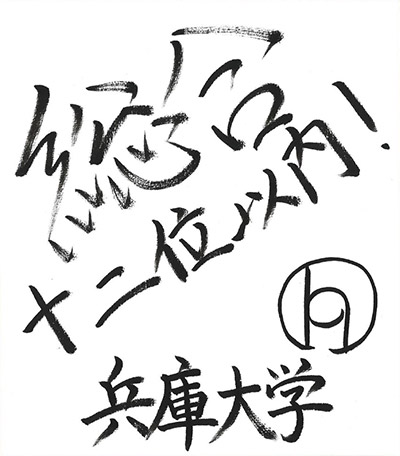 総合
十二位以内!
兵庫大学